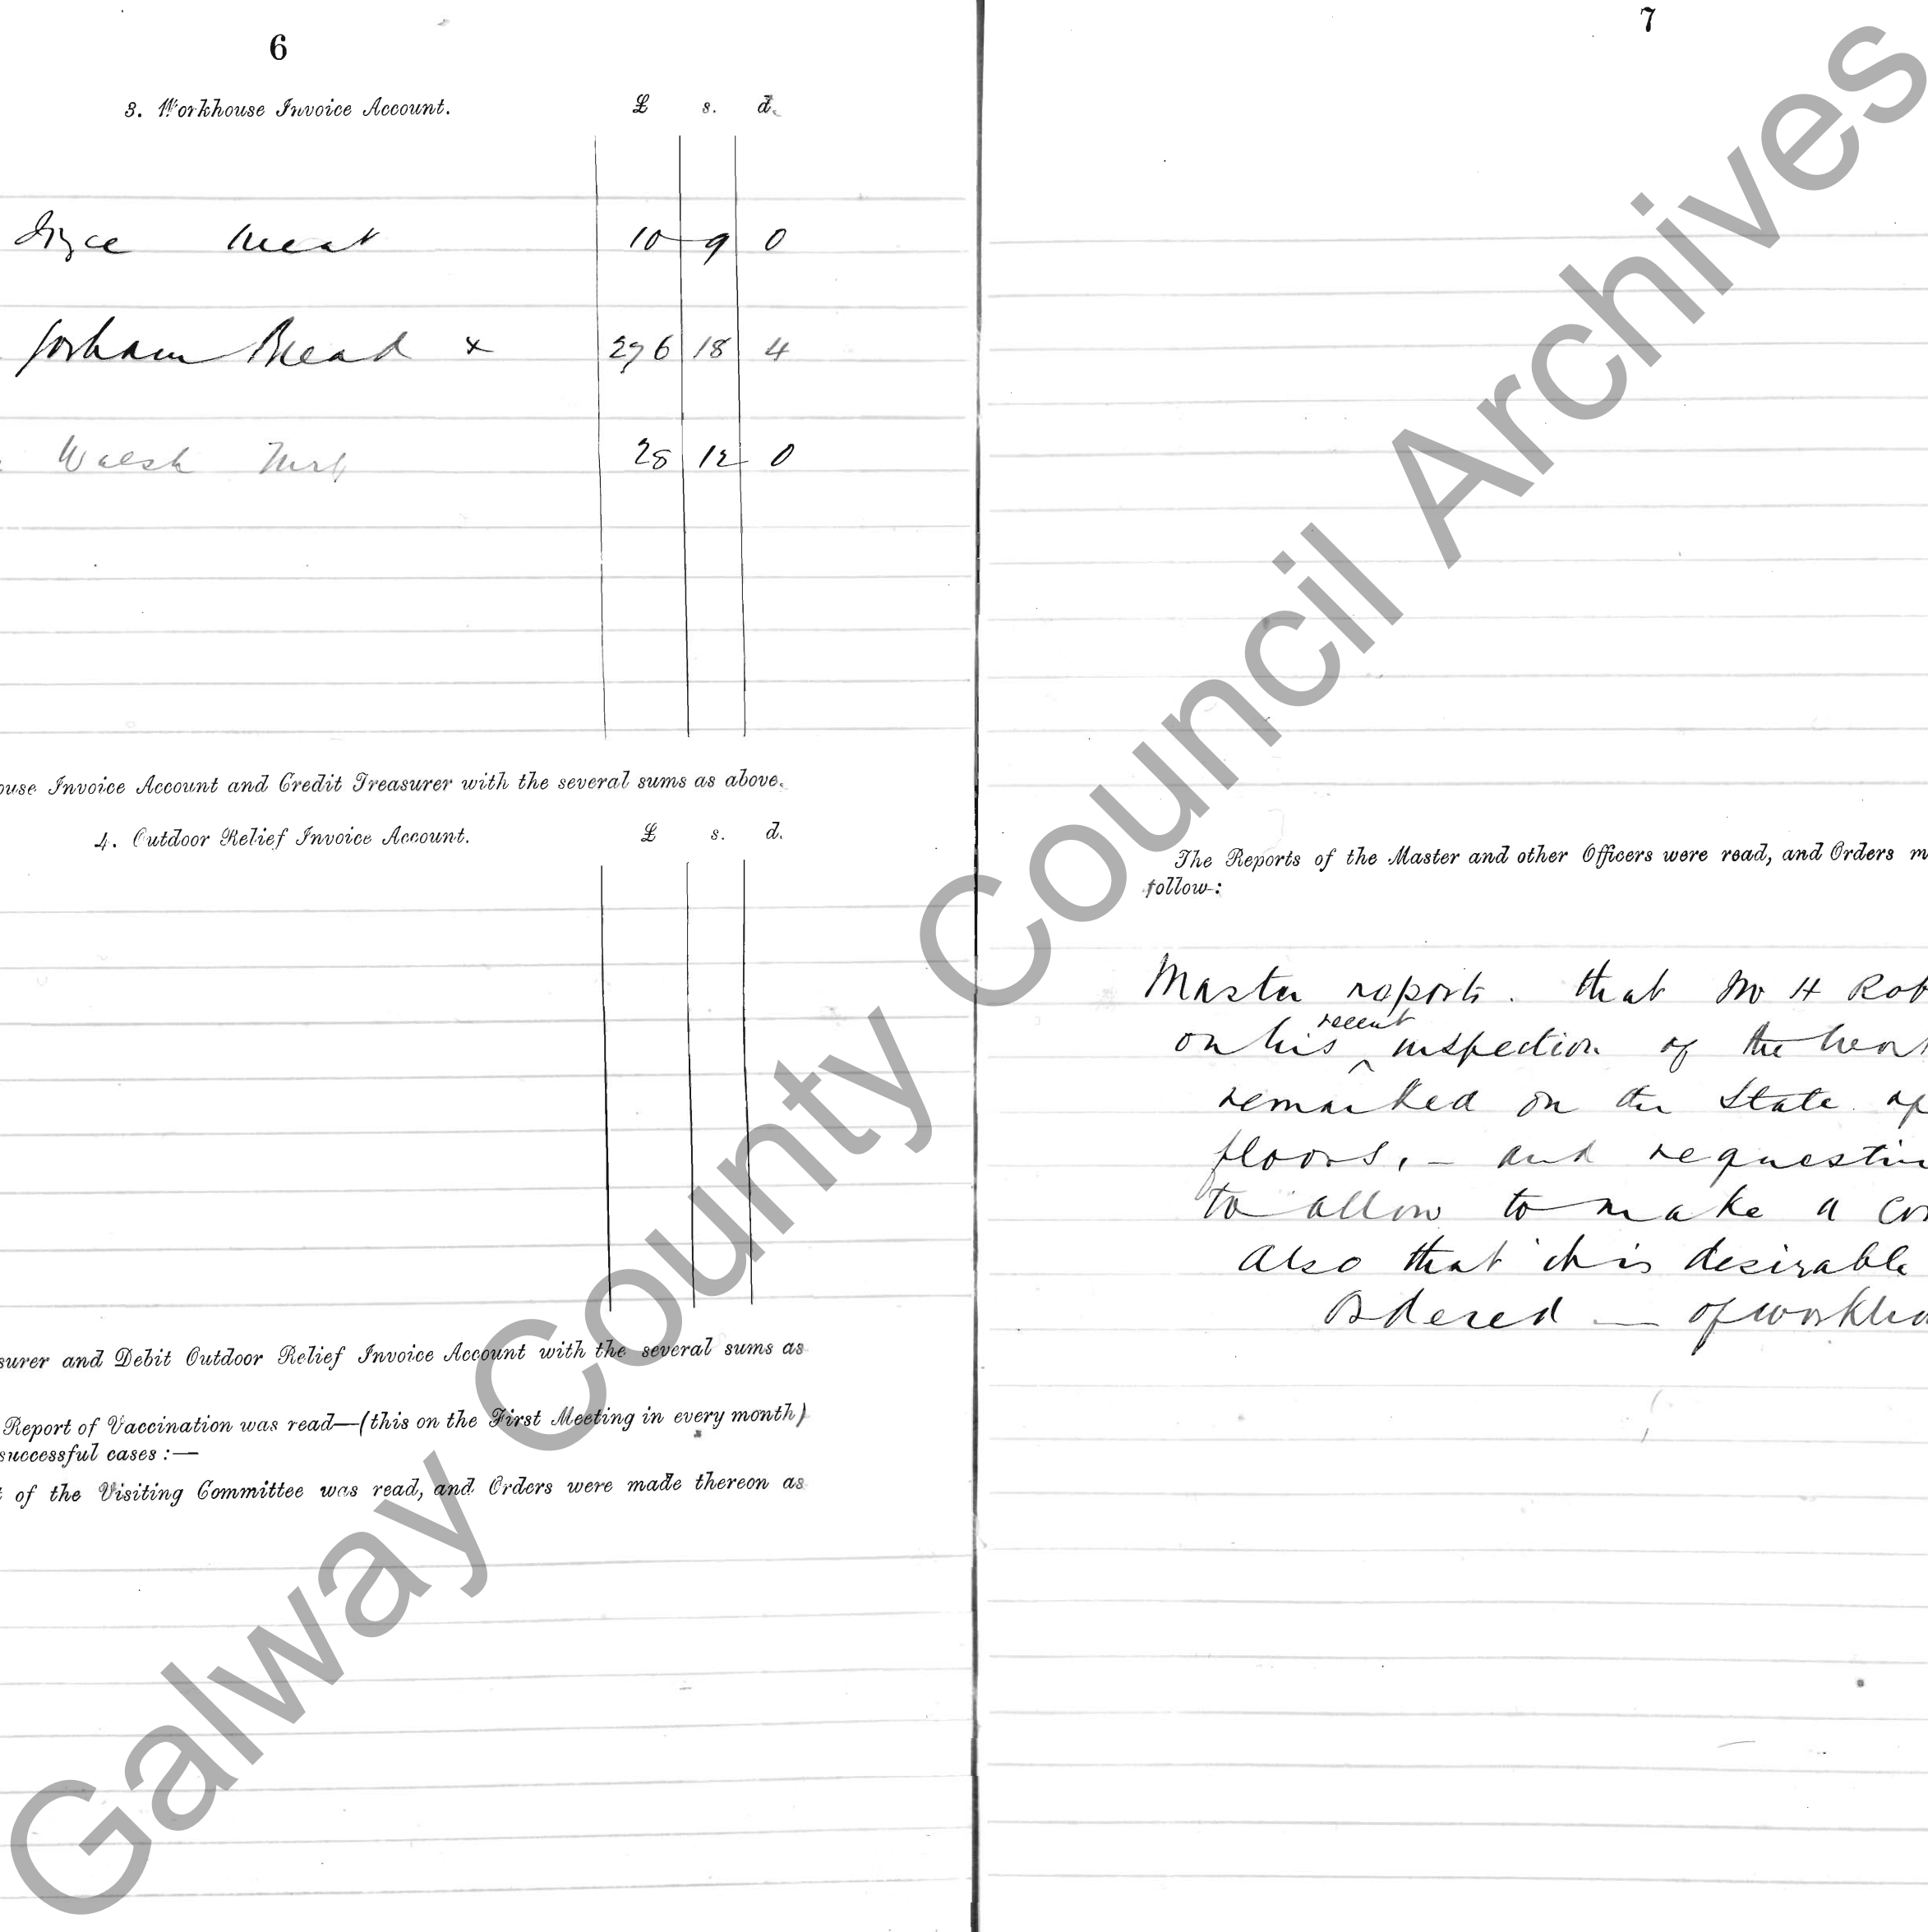 6
3. Workhouse Invoice Account. £ s. d.
Joyce Meat 10 9 0
Gorham Bread x 276 18 4
Walsh Turf 28 12 0
ouse Invoice Account and Credit Treasurer with the several sums as above.
4. Outdoor Relief Invoice Account. £ s. d.
surer and Debit Outdoor Relief Invoice Account with the several sums as
Report of Vaccination was read—(this on the First Meeting in every month)
successful cases :—
of the Visiting Committee was read, and Orders were made thereon as
7
The Reports of the Master and other Officers were read, and Orders m
follow:
Master reports. that Mr H Rob
on his recent inspection of the
remarked on the State of
floors, – and requestin
to allow to make a
Also that it is desirable
Ordered — of workho
Galway County Council Archives